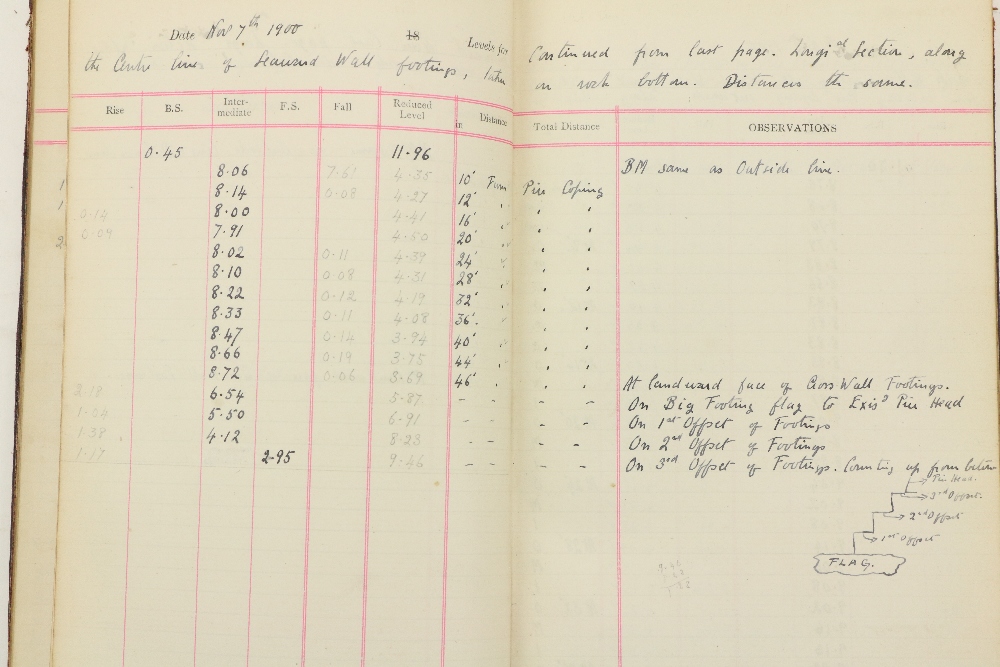 Date Nov 7th 1900 18 Levels for Continued from last page. Longi'd Section, along
the Centre line of Seaward Wall footings, taken on rock bottom. Distances the same.
Rise B.S. Inter-mediate F.S. Fall Reduced Level Distance Total Distance OBSERVATIONS
0.45 11.96 BM same as Outside line.
8.06 7.61 4.35 10' From Pier Coping
8.14 0.08 4.27 12' " " "
0.14 8.00 4.41 16' " " "
0.09 7.91 4.50 20' " " "
8.02 0.11 4.39 24' " " "
8.10 0.08 4.31 28' " " "
8.22 0.12 4.19 32' " " "
8.33 0.11 4.08 36' " " "
8.47 0.14 3.94 40' " " "
8.66 0.19 3.75 44' " " "
8.72 0.06 3.69 46' " " " At landward face of Cross Wall Footings.
2.18 6.54 5.87 – – – – On Big Footing flag to Exis'g Pier Head
1.04 5.50 6.91 – – – – On 1st Offset of Footings
1.38 4.12 8.23 – – – – On 2nd Offset of Footings
1.17 2.95 9.46 – – – – On 3rd Offset of Footings. Counting up from below
Pier Head.
3rd Offset.
2nd Offset
1st Offset
FLAG.